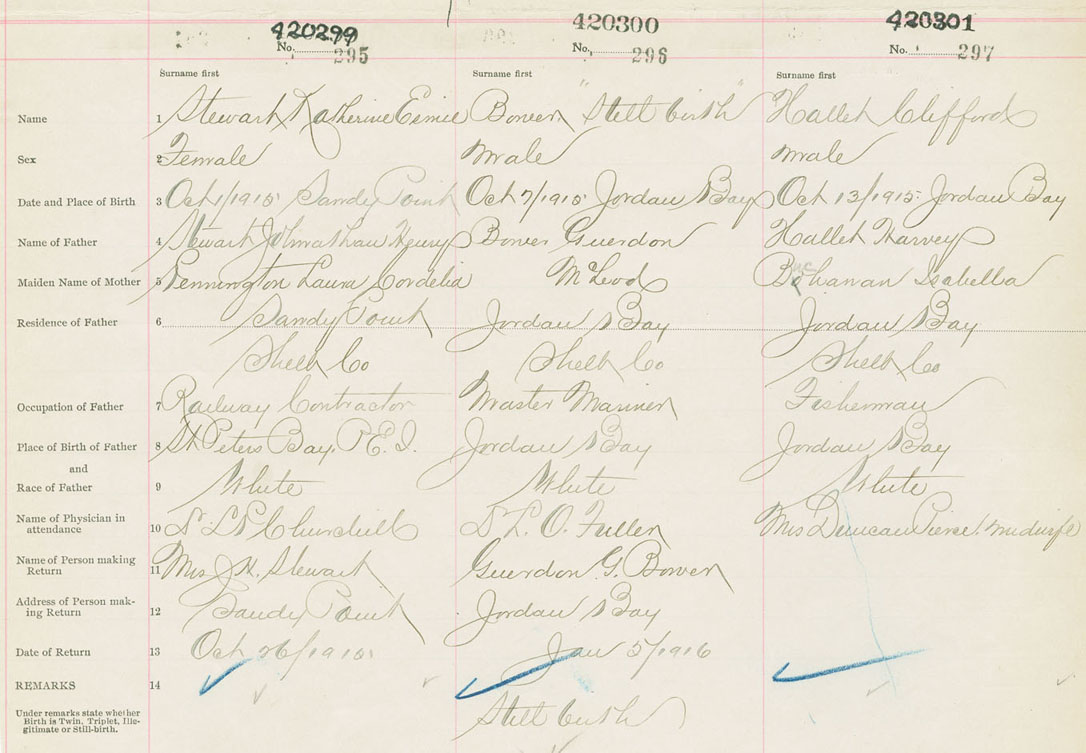 420299 420300 420301
No. 295 No. 296 No. 297
Surname first Surname first Surname first
Name 1 Stewart Katherine Bower "Still birth" Hallet Clifford
Sex 2 Female Male Male
Date and Place of Birth 3 Oct 1/1915 Sandy Point Oct 7/1915 Jordan Bay Oct 13/1915 Jordan Bay
Name of Father 4 Stewart Johnathan Henry Bower Guerdon Hallet Harvey
Maiden Name of Mother 5 Pennington Laura Cordelia McLeod Isabella
Residence of Father 6 Sandy Point Jordan Bay Jordan Bay
Shelb Co Shelb Co Shelb Co
Occupation of Father 7 Railway Contractor Master Mariner Fisherman
Place of Birth of Father 8 St Peters Bay, P.E.I. Jordan Bay Jordan Bay
and
Race of Father 9 White White White
Name of Physician in
attendance 10 Churchill L. O. Fuller Mrs Duncan midwife
Name of Person making
Return 11 Mrs Stewart Guerdon G. Bower
Address of Person mak-
ing Return 12 Sandy Point Jordan Bay
Date of Return 13 Oct 26/1915 Jan 5/1916
REMARKS 14
Under remarks state whether
Birth is Twin, Triplet, Ille-
gitimate or Still-birth.
Still birth